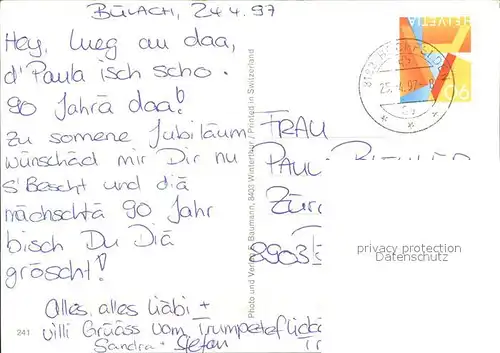 BÜLACH, 24.4.97
Hey, lueg au daa,
d'Paula isch scho
90 Jahrä daa!
Zu somene Jubiläum
wünschäd mir Dir nu
s'Bescht und diä
nächschtä 90 Jahr
bisch Du Diä
gröscht!
Alles, alles Liäbi +
villi Grüäss vom Trumpeteflicke
Sandra + Stefan
241
Photo und Verlag Baumann, 8403 Winterthur / Printed in Switzerland
HELVETIA
90
25.-4.97-8
FRAU
PAUL
Zür
8903
privacy protection
Datenschutz